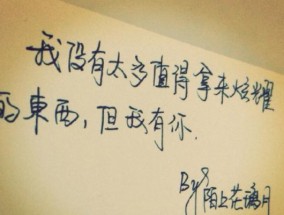 我没有太多值得拿来炫耀
的東西,但我有你.
By 陌上茫漪月